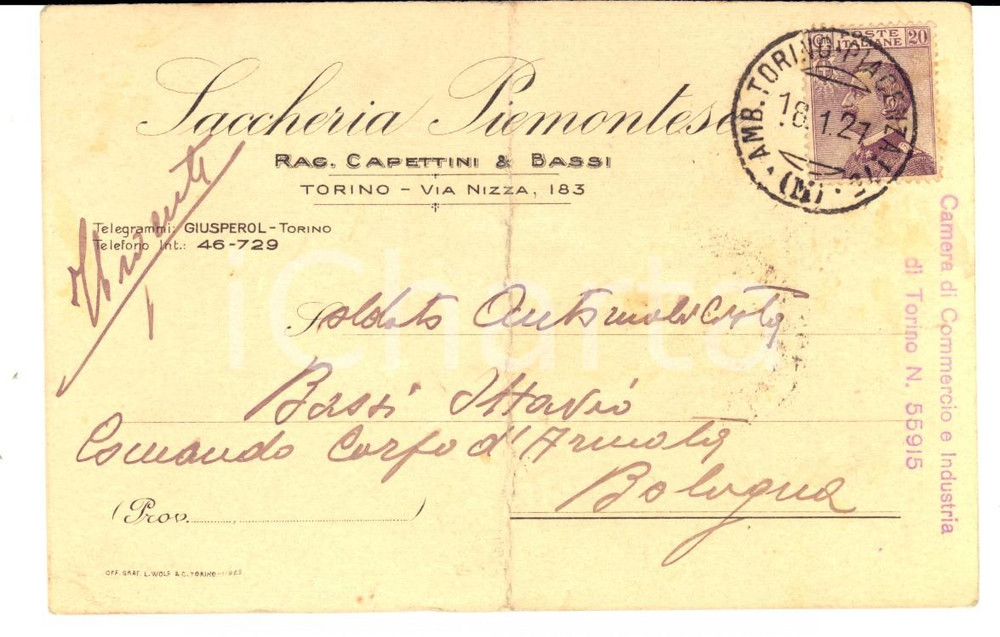 Saccheria Piemontese
RAG. CAPETTINI & BASSI
TORINO - VIA NIZZA, 183
Telegrammi: GIUSPEROL - TORINO
Telefono Int.: 46-729
POSTE ITALIANE 20
AMB. TORINO-PIACENZA
18.1.27
Camera di Commercio e Industria
di Torino N. 55915
Soldato Automobilista
Bassi Ottavio
Comando Corpo d'Armata
Bologna
(Prov. )
OFF. GRAF. L. WOLF & C. TORINO
iCharta